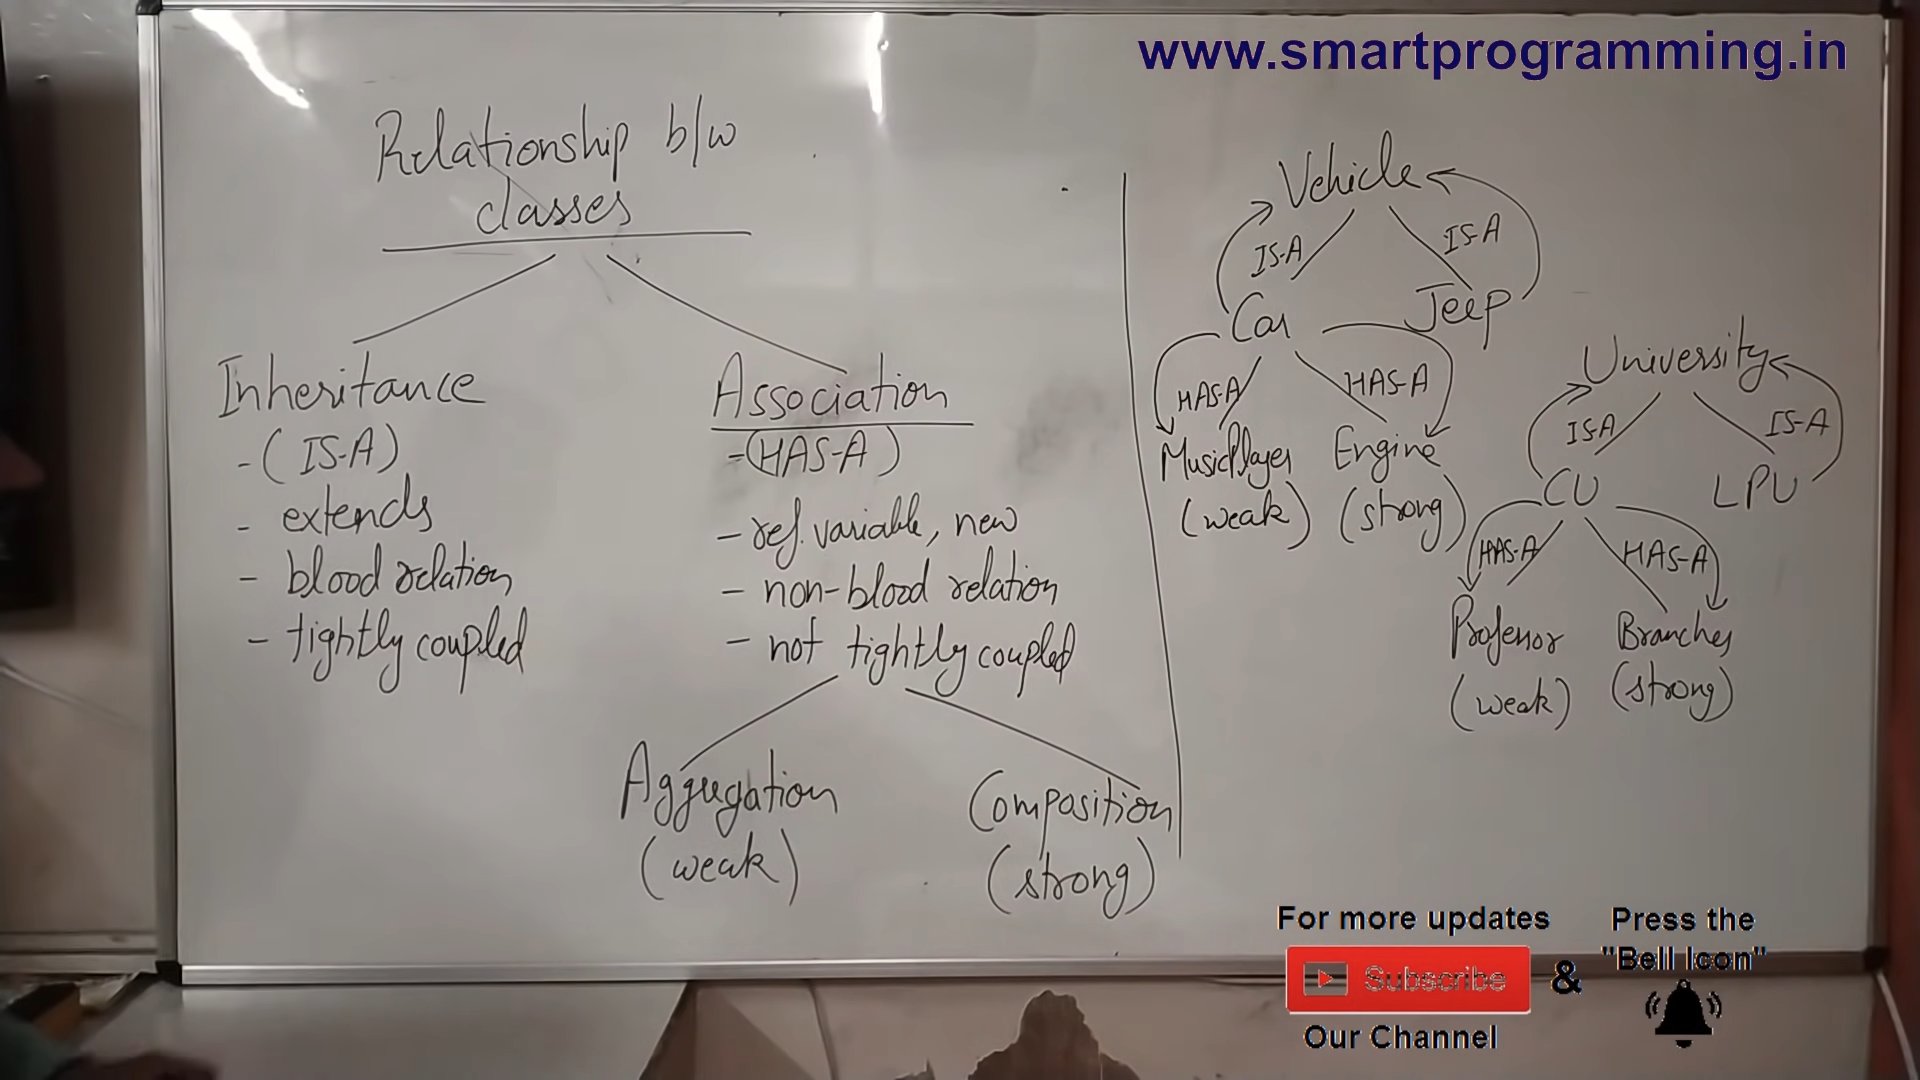 www.smartprogramming.in
Relationship b/w
classes
Inheritance
- (IS-A)
- extends
- blood relation
- tightly coupled
Association
- (HAS-A)
- ref. variable, new
- non-blood relation
- not tightly coupled
Aggregation
(weak)
Composition
(strong)
Vehicle
IS-A
IS-A
Car
Jeep
HAS-A
HAS-A
MusicPlayer
Engine
(weak)
(strong)
University
IS-A
IS-A
CU
LPU
HAS-A
HAS-A
Professor
Branches
(weak)
(strong)
For more updates
Subscribe
Our Channel
&
Press the
"Bell Icon"